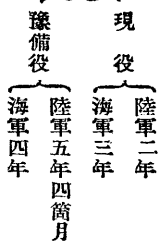 現役
陸軍二年
海軍三年
豫備役
陸軍五年四箇月
海軍四年